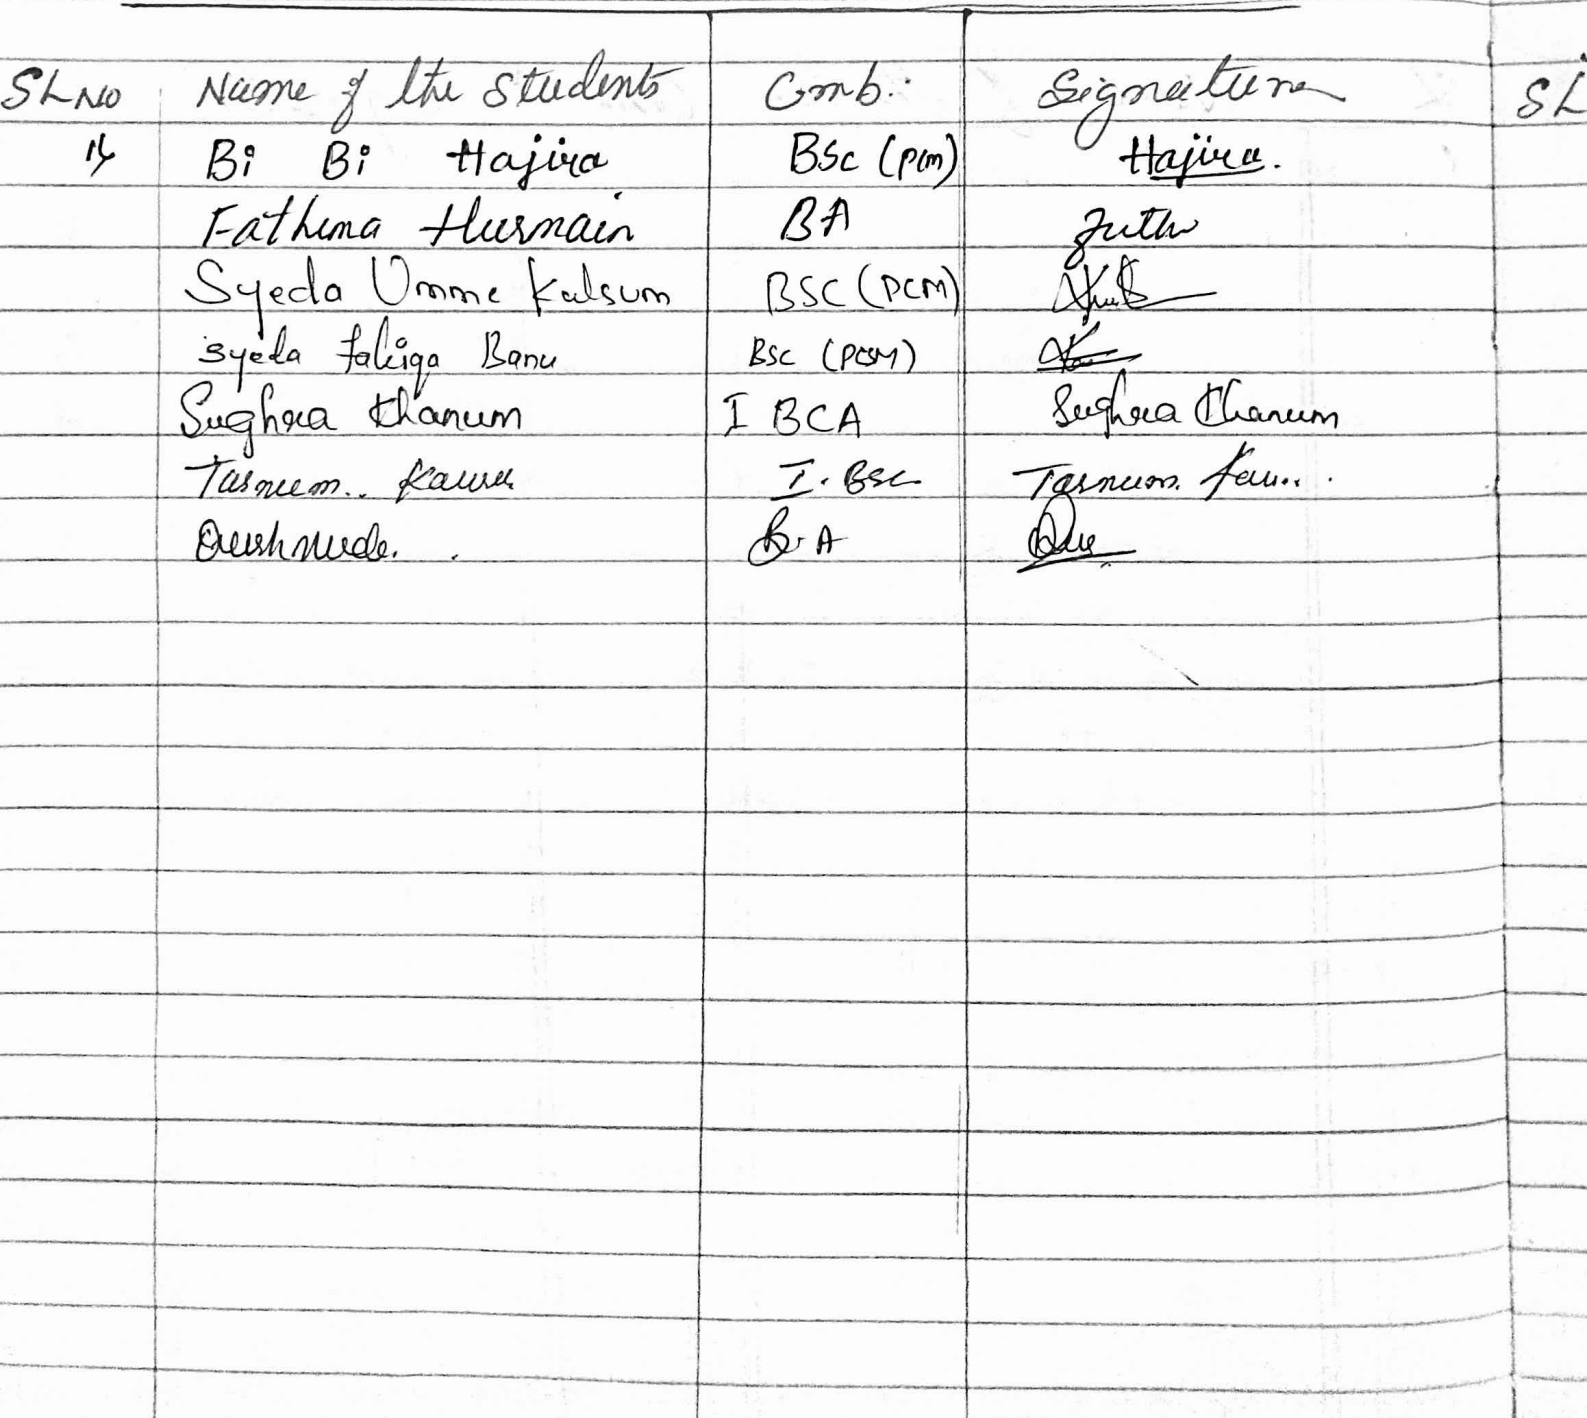 SL NO Name of the Students Comb. Signature SL
1) Bi Bi Hajira BSc (PCM) Hajira.
Fathima Husnain BA
Syeda Umme Kulsum BSC (PCM)
Syeda Banu BSC (PCSM)
Sughra Khanum I BCA Sughra Khanum
Tasneem.. I. BSc Tasneem.
B.A